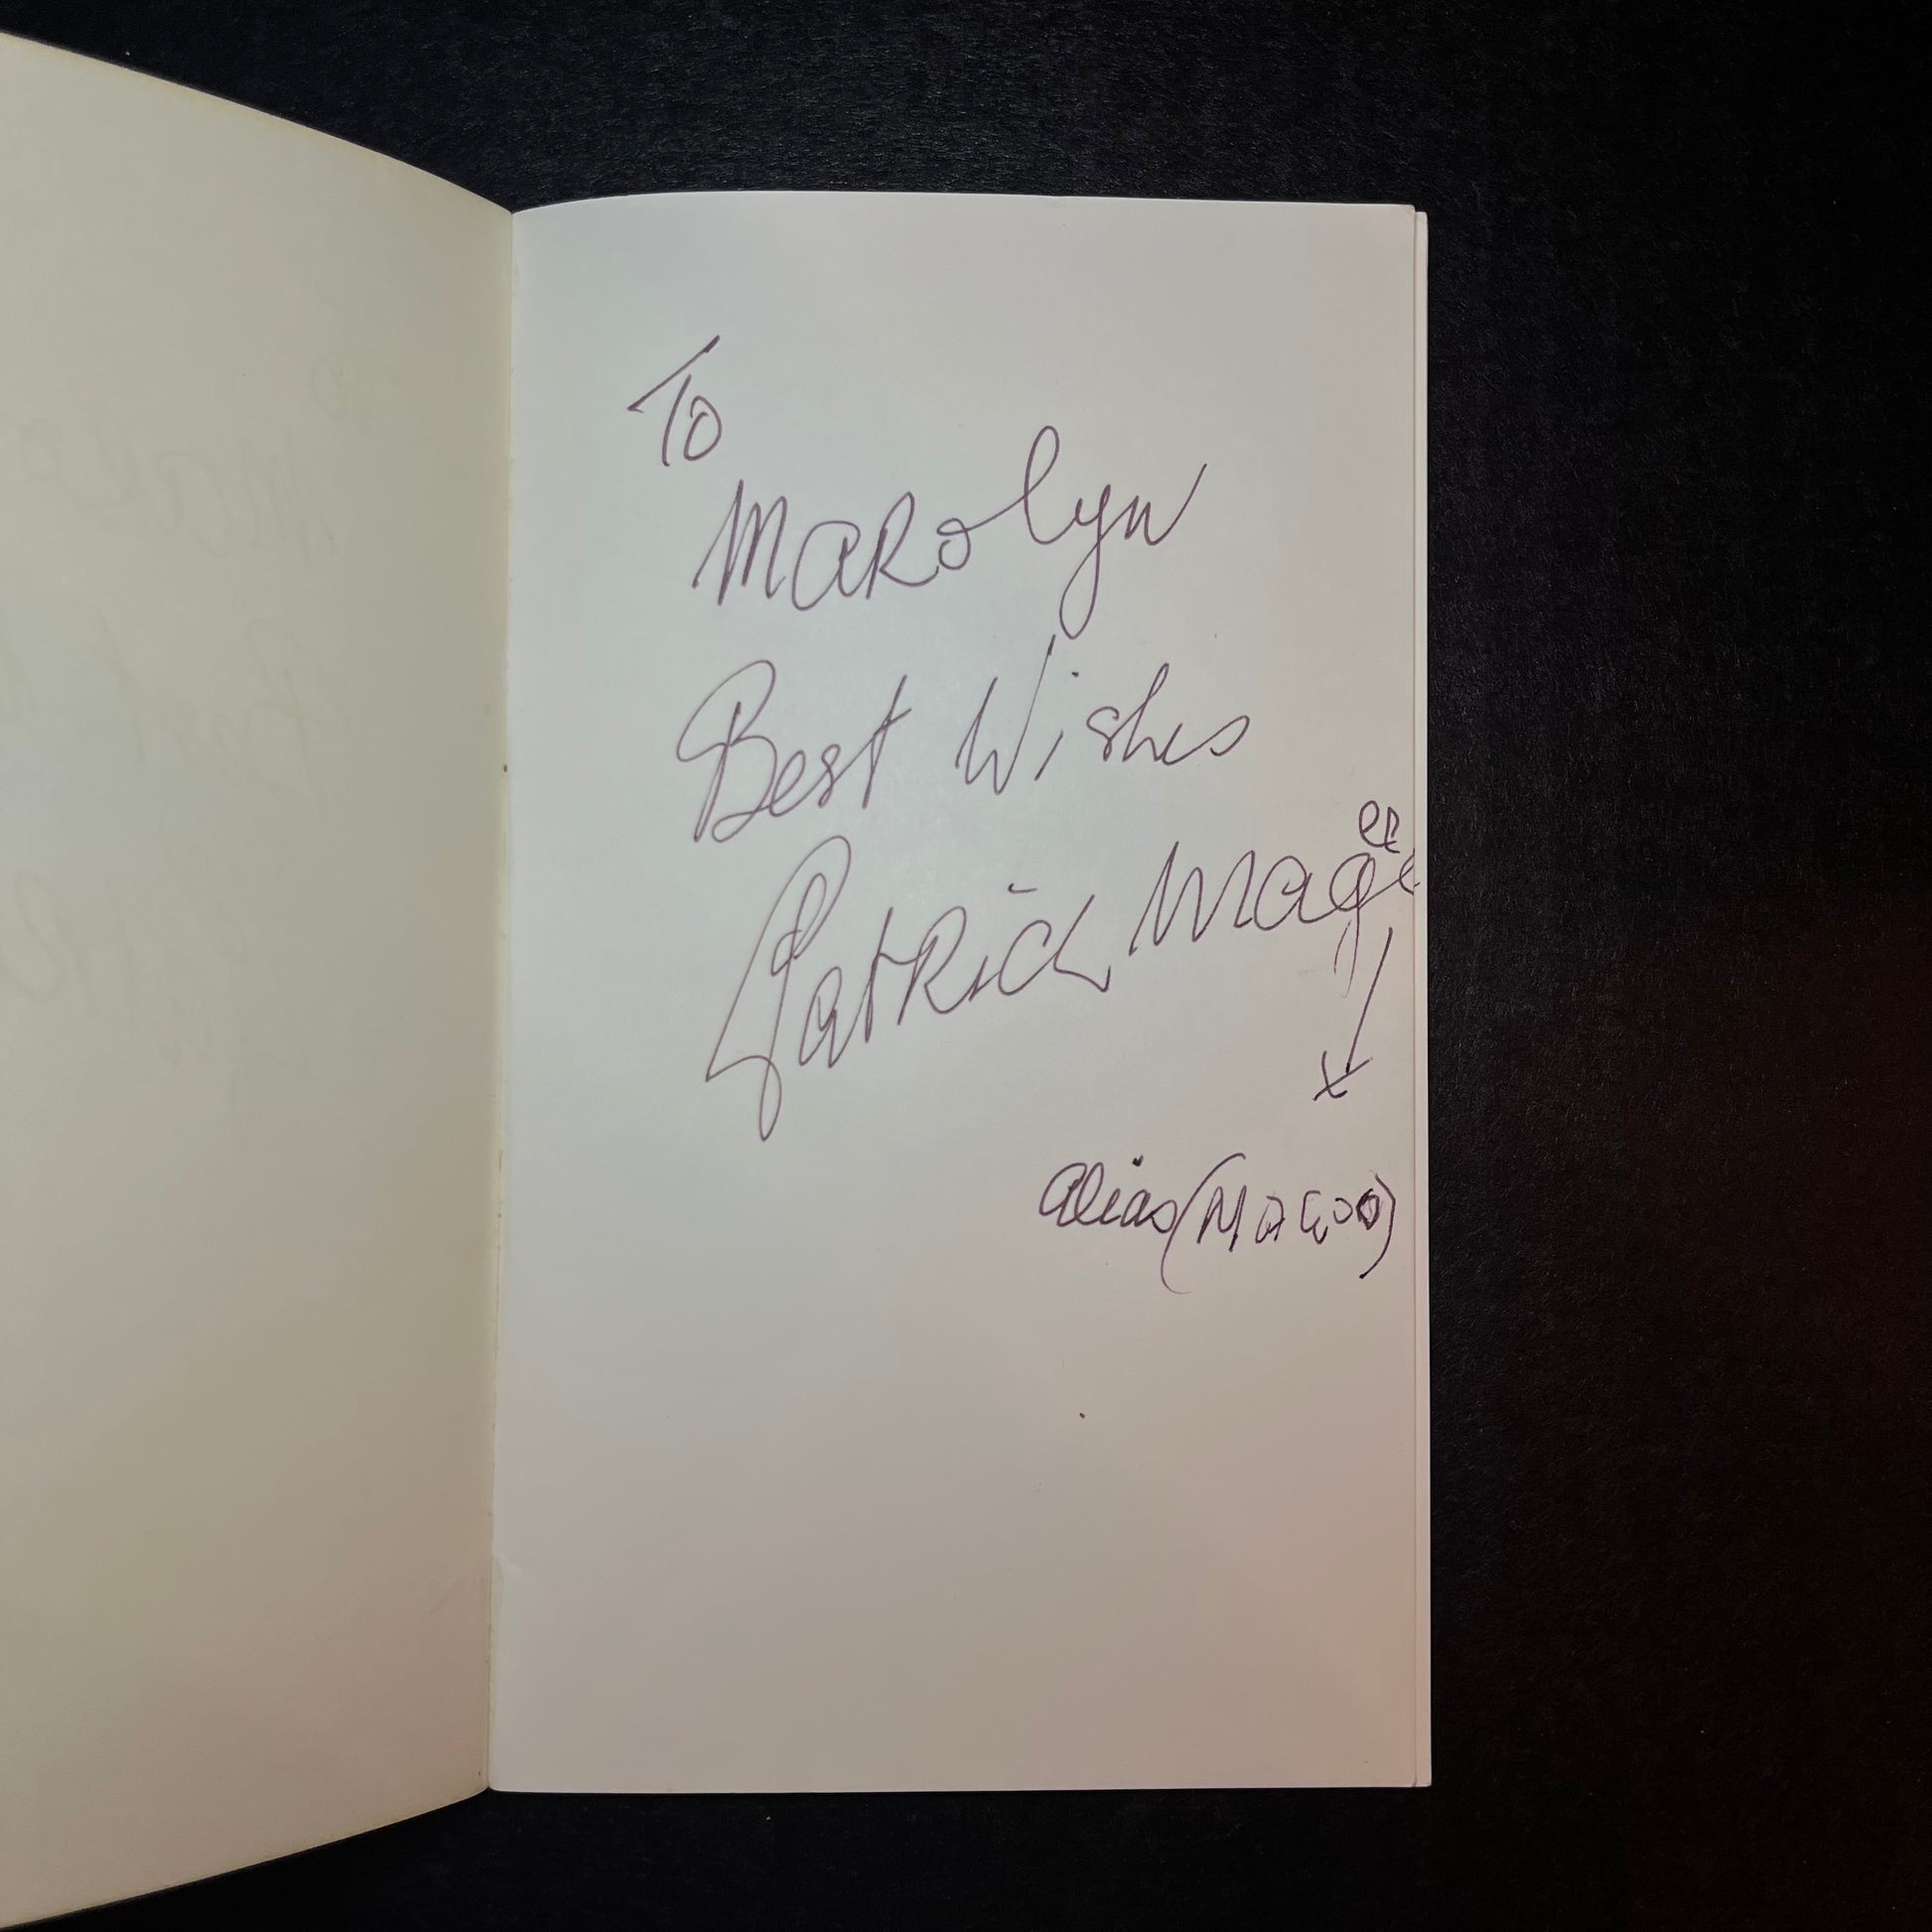 To
Marolyn
Best Wishes
Patrick Magee
er
alias (MAGOO)